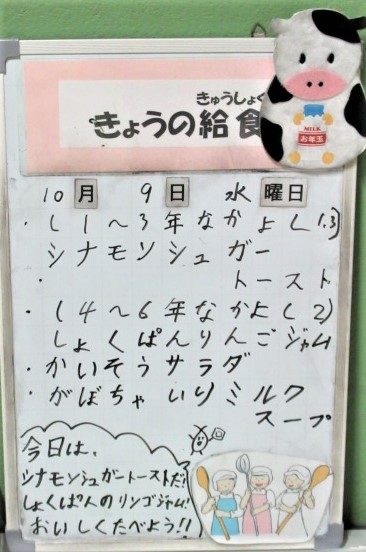 きゅうしょく
きょうの給食
MILK
お年玉
10月 9日 水曜日
・(1～3年なかよし1.3)
シナモンシュガー
トースト
・(4～6年なかよし2)
しょくぱんりんごジャム
・かいそうサラダ
・がぼちゃいりミルク
スープ
今日は、
シナモンシュガートーストだ!
しょくぱんのリンゴジャム!
おいしくたべよう!!